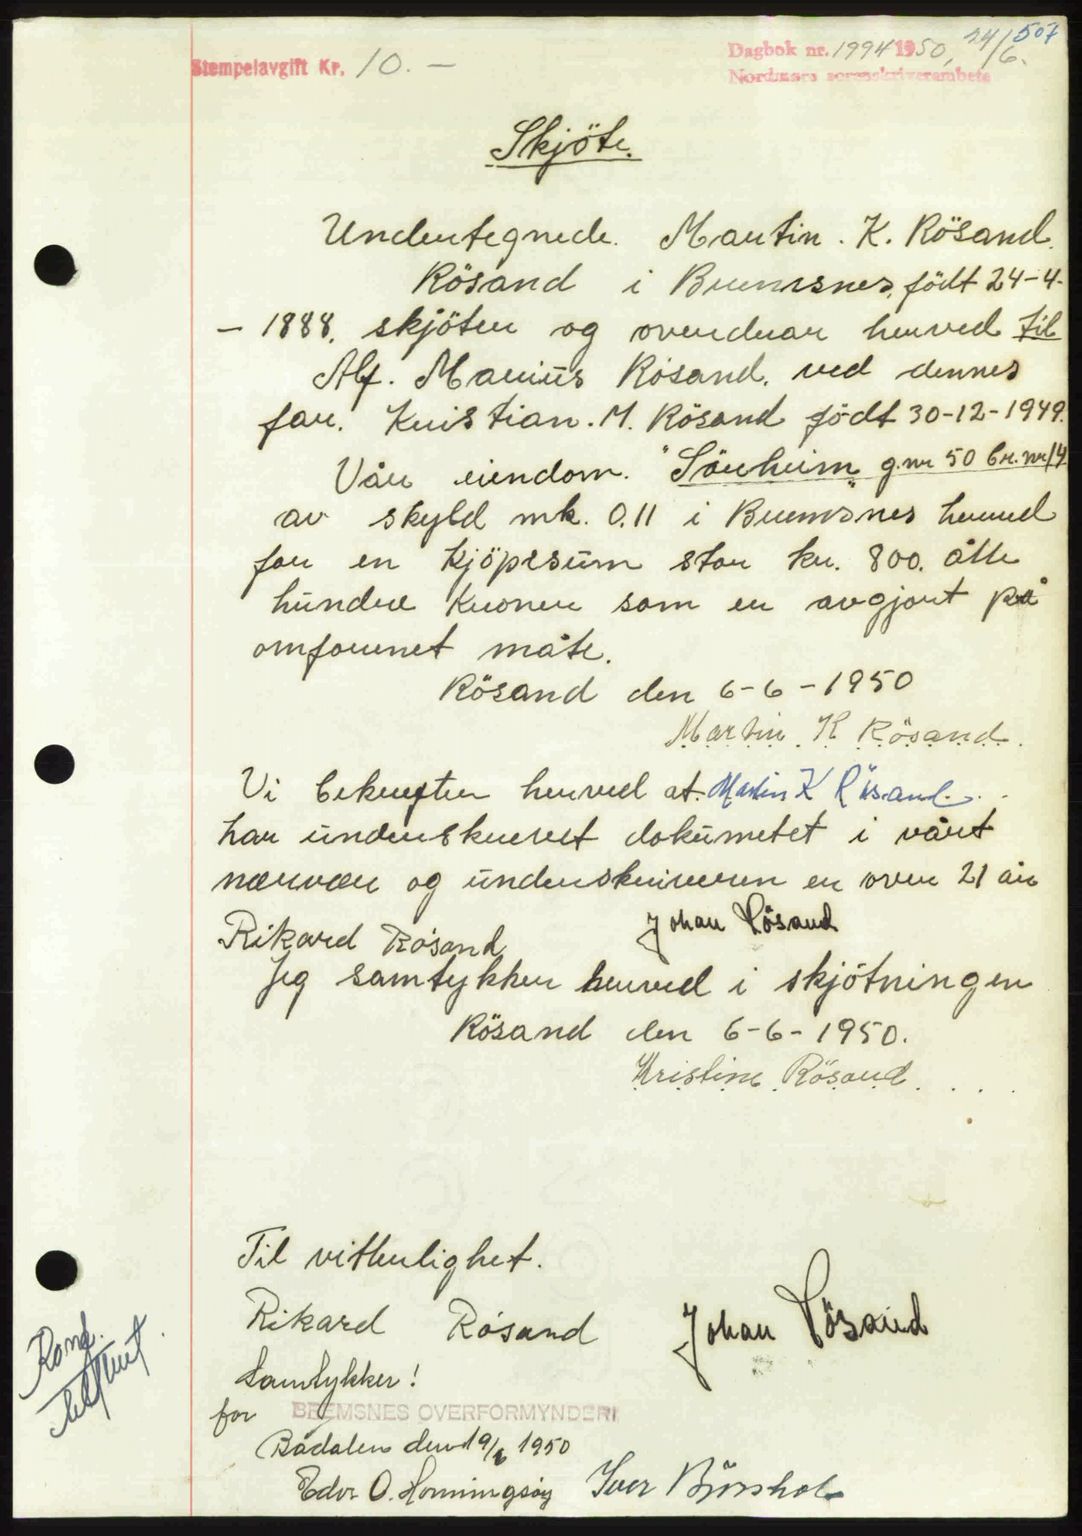 507
Stempelavgift Kr. 10. —
Dagbok nr. 1994 1950, 24/6.
Nordmøre sorenskriverembete
Skjöte.
Undertegnede. Martin. K. Rösand.
Rösand i Bremsnes, födt 24-4-
- 1888. skjöter og overdrar herved til
Alf. Marius Rösand. ved dennes
far. Kristian. M. Rösand födt 30-12-1949.
Vår eiendom. "Sörheim" g.nr 50 br.nr 14
av skyld mk. 0.11 i Bremsnes herred
for en kjöpesum stor kr. 800. åtte
hundre kroner som er avgjort på
omforenet måte.
Rösand den 6-6-1950
Martin K Rösand.
Vi bekrefter herved at Martin K Rösand.
har underskrevet dokumetet i vårt
nærvær og underskriveren er over 21 år
Rikard Rösand Johan Rösand
Jeg samtykker herved i skjötningen
Rösand den 6-6-1950.
Kristine Rösand
Til vitterlighet.
Rikard Rösand Johan Rösand
Samtykker!
for BREMSNES OVERFORMYNDERI
Bådalen den 19/6 1950
Edv. O. Honningsöy Iver Björshol